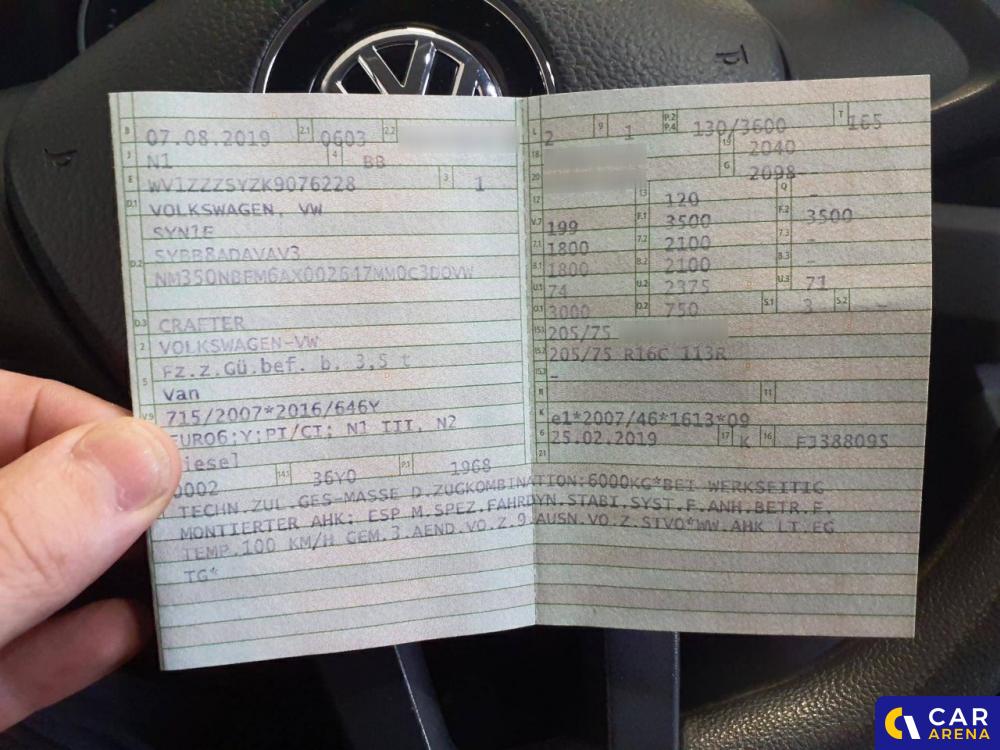 B 07.08.2019 2.1 0603 2.2
J N1 4 BB
E WV1ZZZSYZK9076228 3 1
D.1 VOLKSWAGEN, VW
SYN1E
D.2 SYBB8ADAVAV3
NM350NBFM6AX002647MM0C3DOVW
D.3 CRAFTER
2 VOLKSWAGEN-VW
5 Fz.z.Gü.bef. b. 3,5 t
Van
V.9 715/2007*2016/646Y
EURO6;Y;PI/CI; N1 III, N2
iesel
0002 14.1 36Y0 P.1 1968
L 2 9 1 P.2 P.4 130/3600 T 165
18 19 2040
20 G 2098-
12 13 120 Q -
V.7 199 F.1 3500 F.2 3500
7.1 1800 7.2 2100 7.3 -
8.1 1800 8.2 2100 8.3 -
U.1 74 U.2 2375 U.3 71
O.1 3000 O.2 750 S.1 3 S.2 -
15.1 205/75
15.2 205/75 R16C 113R
15.3 -
R 11
K e1*2007/46*1613*09
6 25.02.2019 17 K 16 FJ388095
21
TECHN.ZUL.GES-MASSE D.ZUGKOMBINATION:6000KG*BEI WERKSEITIG
MONTIERTER AHK: ESP M.SPEZ.FAHRDYN.STABI.SYST.F.ANH.BETR.F.
TEMP.100 KM/H GEM.3.AEND.VO.Z.9.AUSN.VO.Z.STVO*WW.AHK LT.EG
TG*
CAR
ARENA